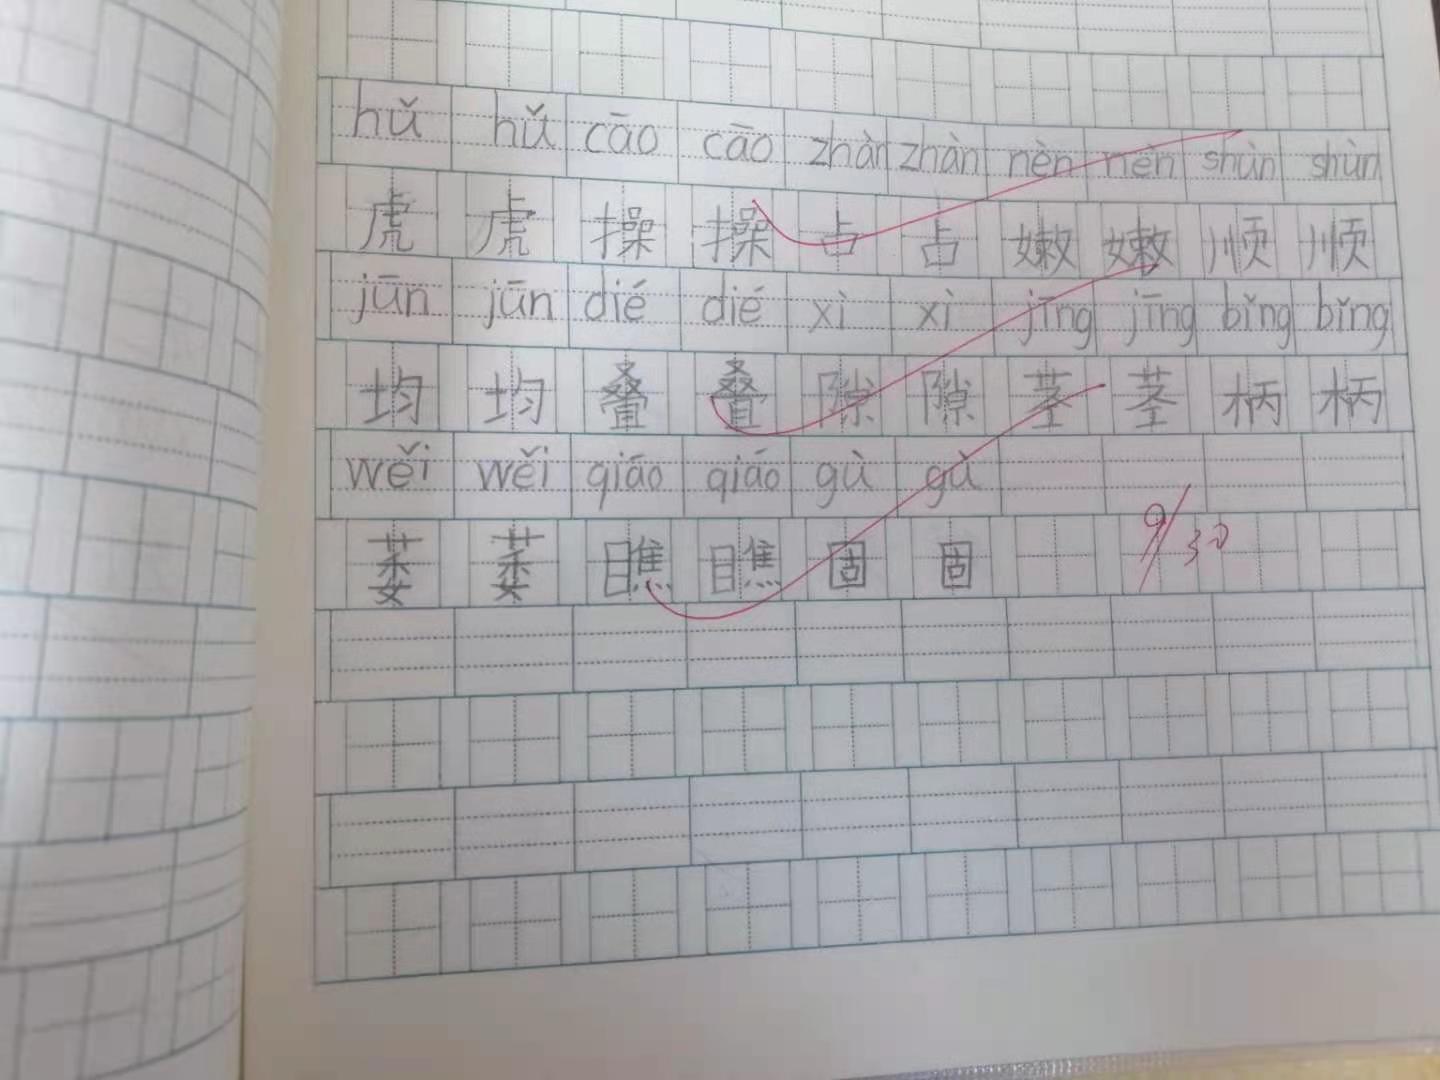 hǔ hǔ cāo cāo zhàn zhàn nèn nèn shùn shùn
虎 虎 操 操 占 占 嫩 嫩 顺 顺
jūn jūn dié dié xì xì jīng jīng bǐng bǐng
均 均 叠 叠 隙 隙 茎 茎 柄 柄
wěi wěi qiáo qiáo gù gù
萎 萎 瞧 瞧 固 固
9/30